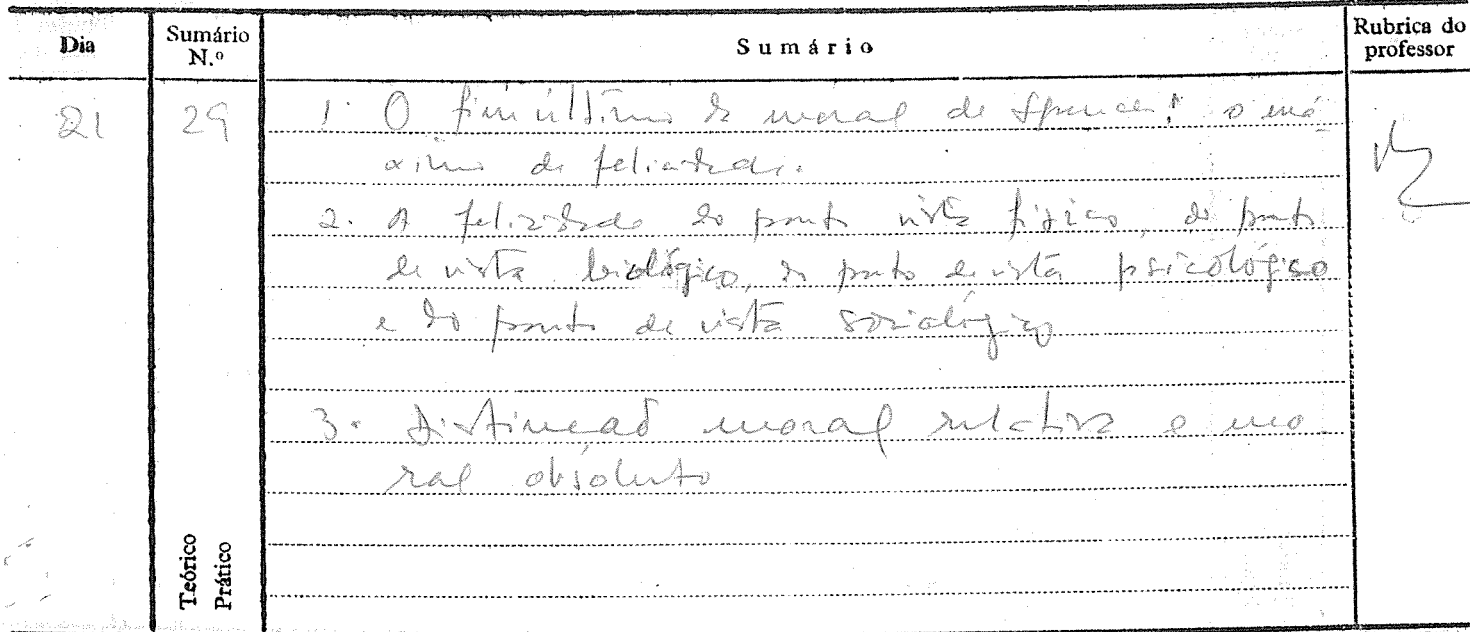 Dia
Sumário
N.º
Sumário
Rubrica do
professor
21
29
1. O fim último da moral de Spencer: o má-
ximo de felicidade.
2. A felicidade do ponto vista físico, do ponto
de vista biológico, do ponto de vista psicológico
e do ponto de vista sociológico
3. Distinção moral relativa e mo
ral absoluto
Teórico
Prático